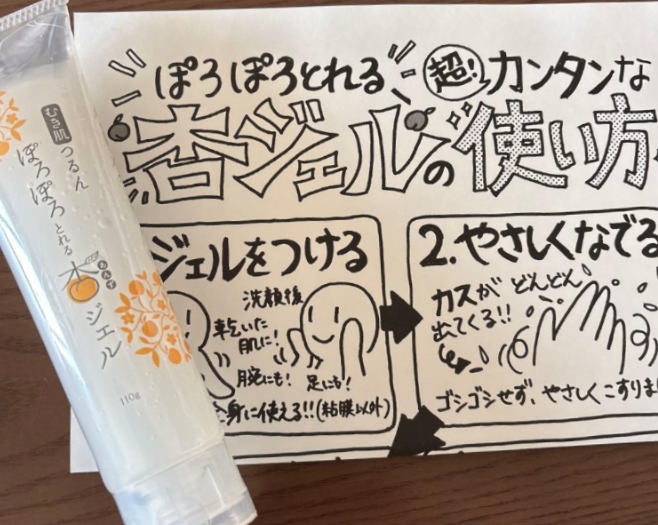 むき肌
つるん
ぽろぽろとれる
杏
あんず
ジェル
110g
ぽろぽろとれる 超!カンタンな
杏ジェルの使い方
ジェルをつける
洗顔後
乾いた
肌に!
腕にも! 足にも!
全身に使える!!(粘膜以外)
2.やさしくなでる
カスが どんどん
出てくる!!
ゴシゴシせず、やさしくこすりま